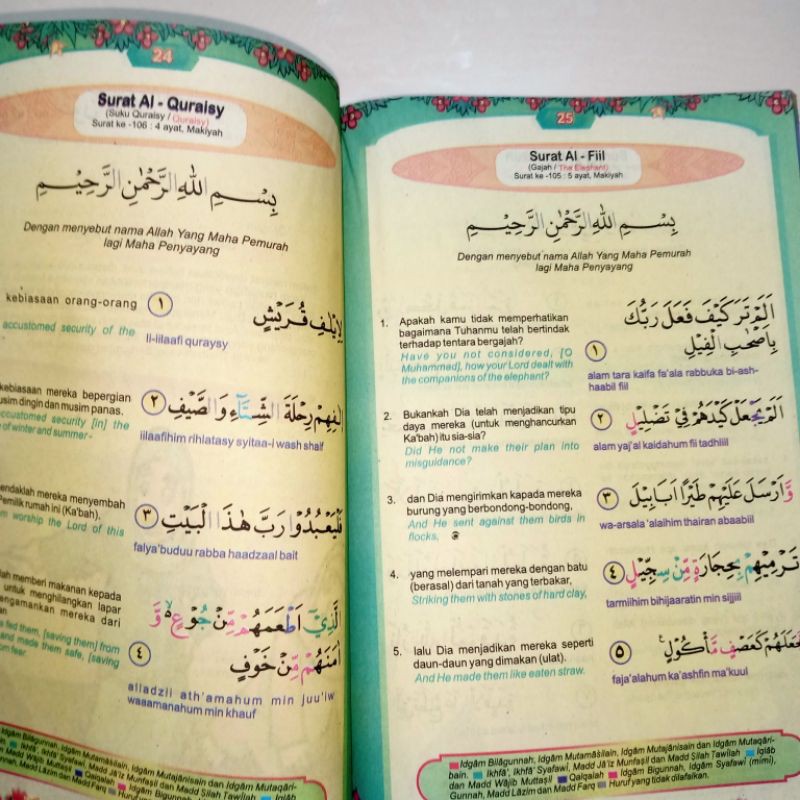 24
Surat Al - Quraisy
(Suku Quraisy / Quraisy)
Surat ke -106 : 4 ayat, Makiyah
بِسْمِ اللّٰهِ الرَّحْمٰنِ الرَّحِيْمِ
Dengan menyebut nama Allah Yang Maha Pemurah
lagi Maha Penyayang
kebiasaan orang-orang
accustomed security of the
١
لِاِيْلٰفِ قُرَيْشٍ
li-lilaafi quraysy
kebiasaan mereka bepergian
musim dingin dan musim panas.
accustomed security [in] the
of winter and summer -
٢
اٖلٰفِهِمْ رِحْلَةَ الشِّتَاۤءِ وَالصَّيْفِ
iilaafihim rihlatasy syitaa-i wash shaif
endaklah mereka menyembah
Pemilik rumah ini (Ka'bah).
worship the Lord of this
٣
فَلْيَعْبُدُوْا رَبَّ هٰذَا الْبَيْتِ
falya'buduu rabba haadzaal bait
lah memberi makanan kepada
untuk menghilangkan lapar
engamankan mereka dari
fed them, [saving them] from
and made them safe, [saving
fear.
٤
الَّذِيْٓ اَطْعَمَهُمْ مِّنْ جُوْعٍ ەۙ وَّ
اٰمَنَهُمْ مِّنْ خَوْفٍ
alladzii ath'amahum min juu'iw
waaamanahum min khauf
Idgâm Bilâgunnah, Idgâm Mutamâsilain, Idgâm Mutajânisain dan Idgâm Mutaqâri-
bain. Ikhfâ', Ikhfâ' Syafawî, Madd Jâ'iz Munfasil dan Madd Silah Tawîlah Iqlâb
dan Madd Wâjib Muttasil Qalqalah Idgâm Bigunnah,
Gunnah, Madd Lâzim dan Madd Farq Huruf yang tidak dilafalkan.
25
Surat Al - Fiil
(Gajah / The Elephant)
Surat ke -105 : 5 ayat, Makiyah
بِسْمِ اللّٰهِ الرَّحْمٰنِ الرَّحِيْمِ
Dengan menyebut nama Allah Yang Maha Pemurah
lagi Maha Penyayang
1. Apakah kamu tidak memperhatikan
bagaimana Tuhanmu telah bertindak
terhadap tentara bergajah?
Have you not considered, [O
Muhammad], how your Lord dealt with
the companions of the elephant?
اَلَمْ تَرَ كَيْفَ فَعَلَ رَبُّكَ
بِاَصْحٰبِ الْفِيْلِ
١
alam tara kaifa fa'ala rabbuka bi-ash-
haabil fiil
2. Bukankah Dia telah menjadikan tipu
daya mereka (untuk menghancurkan
Ka'bah) itu sia-sia?
Did He not make their plan into
misguidance?
٢
اَلَمْ يَجْعَلْ كَيْدَهُمْ فِيْ تَضْلِيْلٍ
alam yaj'al kaidahum fii tadhliil
3. dan Dia mengirimkan kapada mereka
burung yang berbondong-bondong,
And He sent against them birds in
flocks,
٣
وَّاَرْسَلَ عَلَيْهِمْ طَيْرًا اَبَابِيْلَ
wa-arsala 'alaihim thairan abaabiil
4. yang melempari mereka dengan batu
(berasal) dari tanah yang terbakar,
Striking them with stones of hard clay,
٤
تَرْمِيْهِمْ بِحِجَارَةٍ مِّنْ سِجِّيْلٍ
tarmiihim bihijaaratin min sijjiil
5. lalu Dia menjadikan mereka seperti
daun-daun yang dimakan (ulat).
And He made them like eaten straw.
٥
فَجَعَلَهُمْ كَعَصْفٍ مَّأْكُوْلٍ
faja'alahum ka'ashfin ma'kuul
Idgâm Bilâgunnah, Idgâm Mutamâsilain, Idgâm Mutajânisain dan Idgâm Mutaqâri-
bain. Ikhfâ', Ikhfâ' Syafawî, Madd Jâ'iz Munfasil dan Madd Silah Tawîlah Iqlâb
dan Madd Wâjib Muttasil Qalqalah Idgâm Bigunnah, Idgâm Syafawî (mimi),
Gunnah, Madd Lâzim dan Madd Farq Huruf yang tidak dilafalkan.